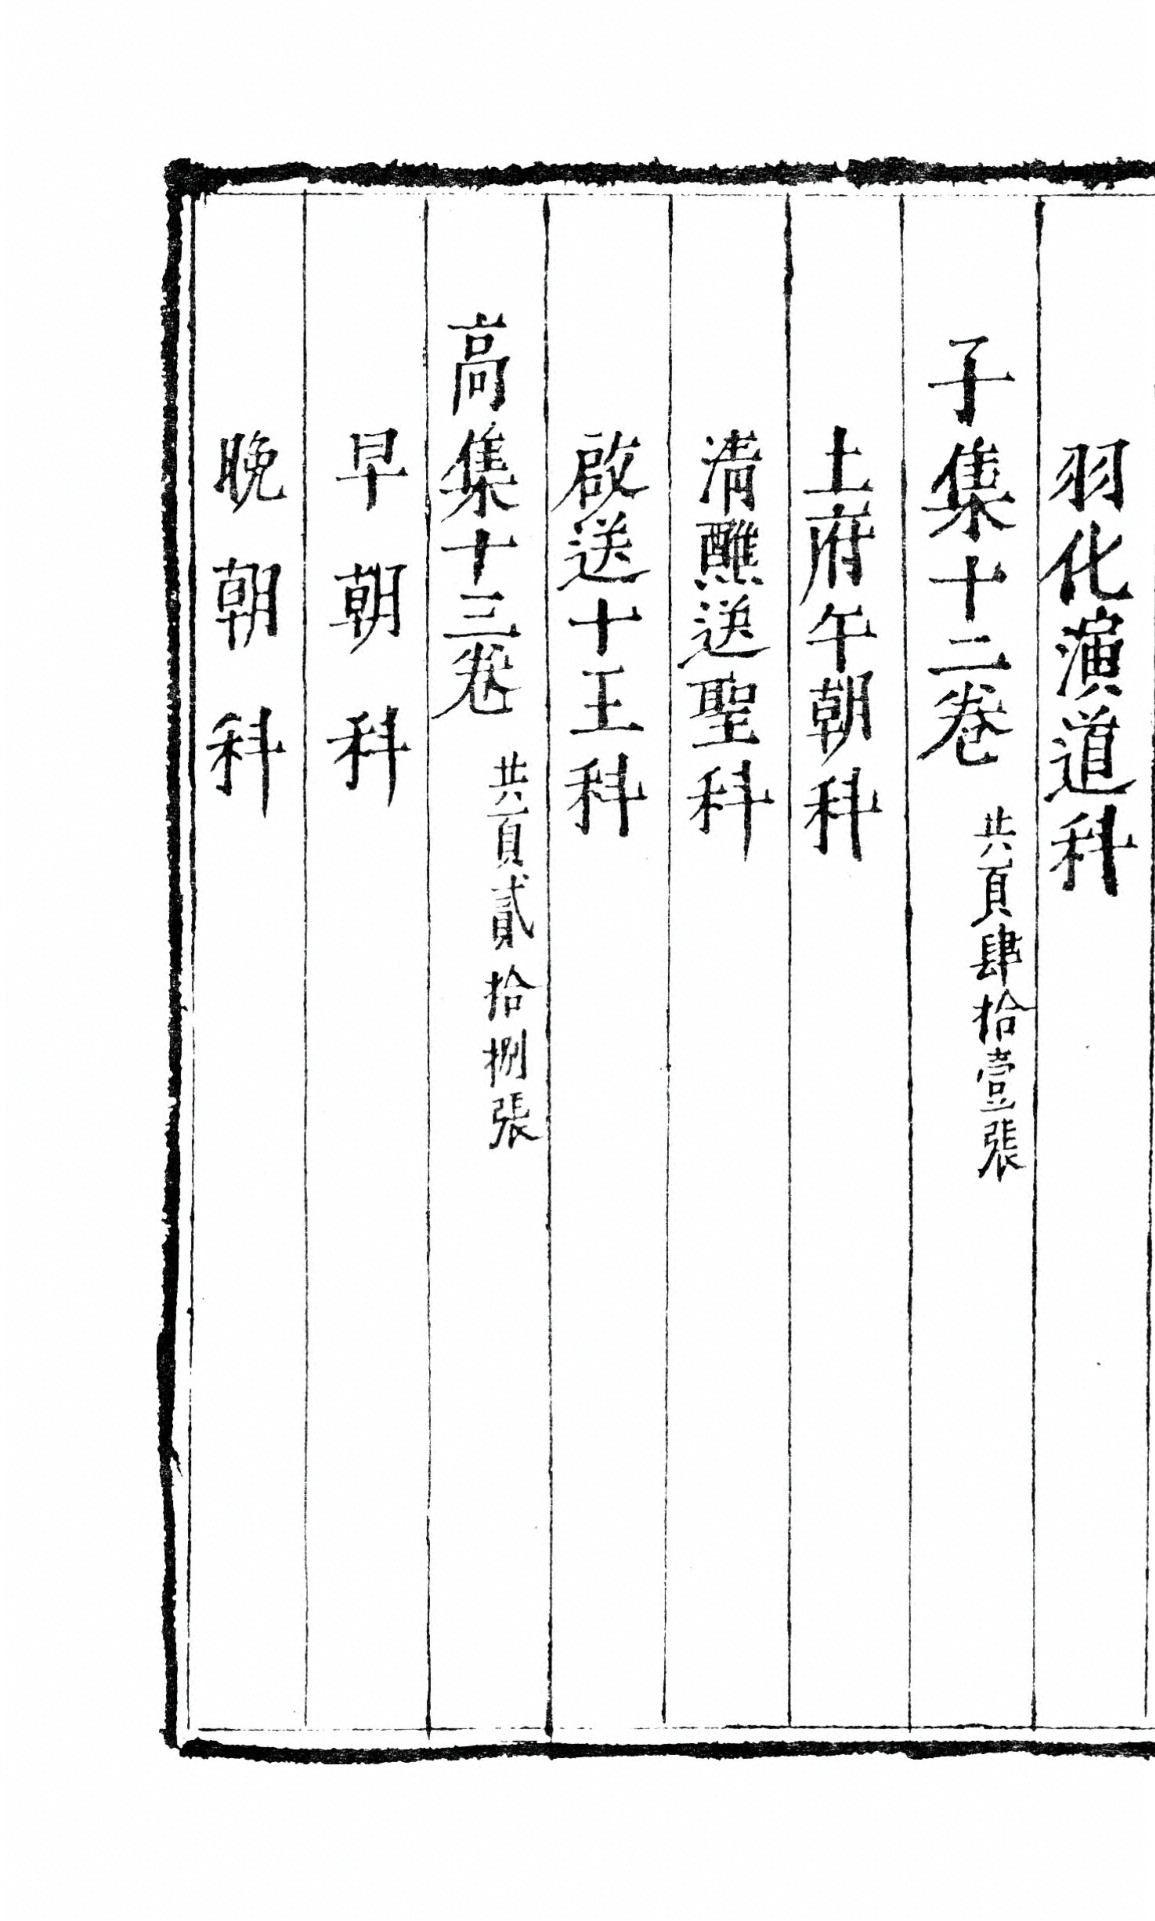 羽化演道科
子集十二卷 共頁肆拾壹張
土府午朝科
清醮送聖科
啟送十王科
高集十三卷 共頁貳拾捌張
早朝科
晚朝科